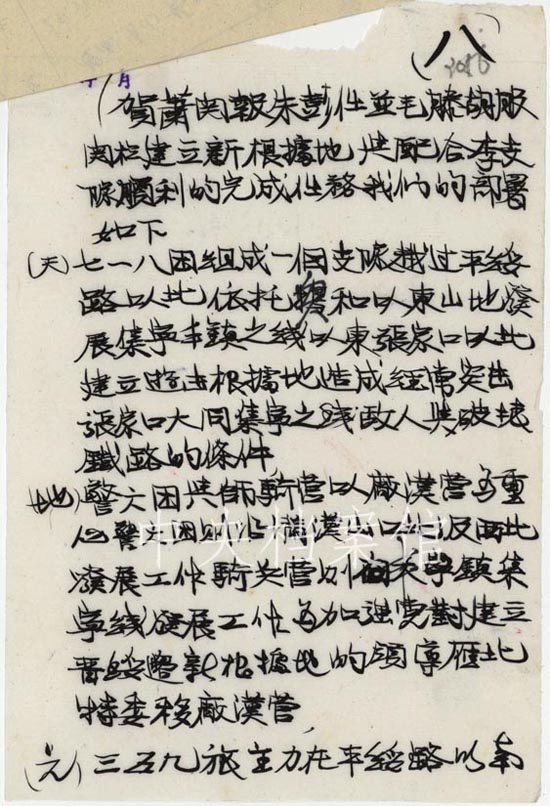 (八)
年 月
賀蕭関報朱彭任並毛滕胡服
関於建立新根據地與配合李支
隊順利的完成任務我們的部署
如下
(天)七一八团組成一個支隊越过平綏
路以北依托綏和以東山地發
展集寧丰鎮之线以東張家口以北
建立游击根據地造成經常突出
張家口大同集寧之綫敵人與破坏
鐵路的條件
(地)警六团與師騎营以廠漢营為重
心警六团則沿構漢山口北及西北
發展工作騎兵营则向大學鎮集
寧线發展工作為加强党對建立
晋綏察新根據地的領導雁北
特委移廠漢营
(元)三五九旅主力在平綏路以南
中央档案馆